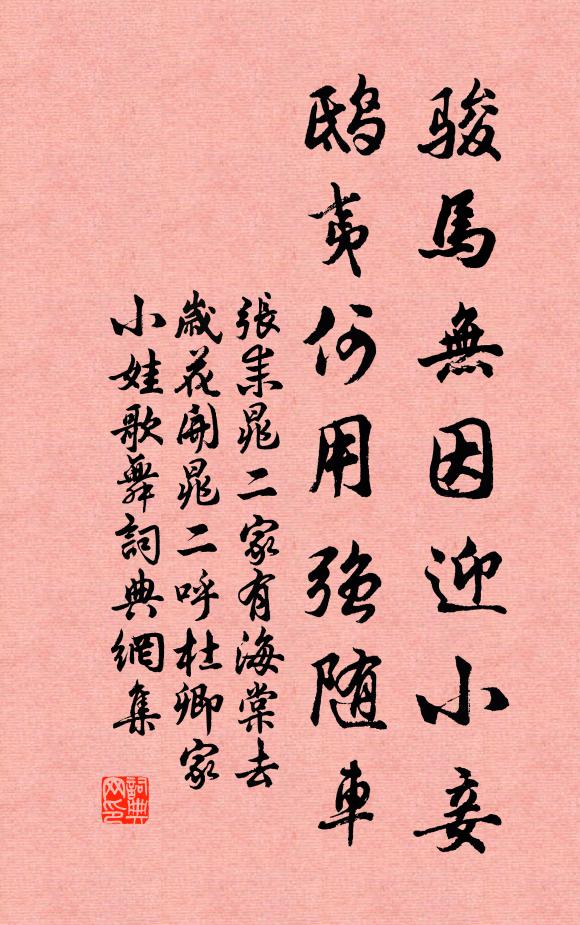 骏馬無因迎小妾
鸱夷何用強随車
張耒晁二家有海棠去
歲花開晁二呼杜卿家
小娃歌舞詞典網集
詞典
网印